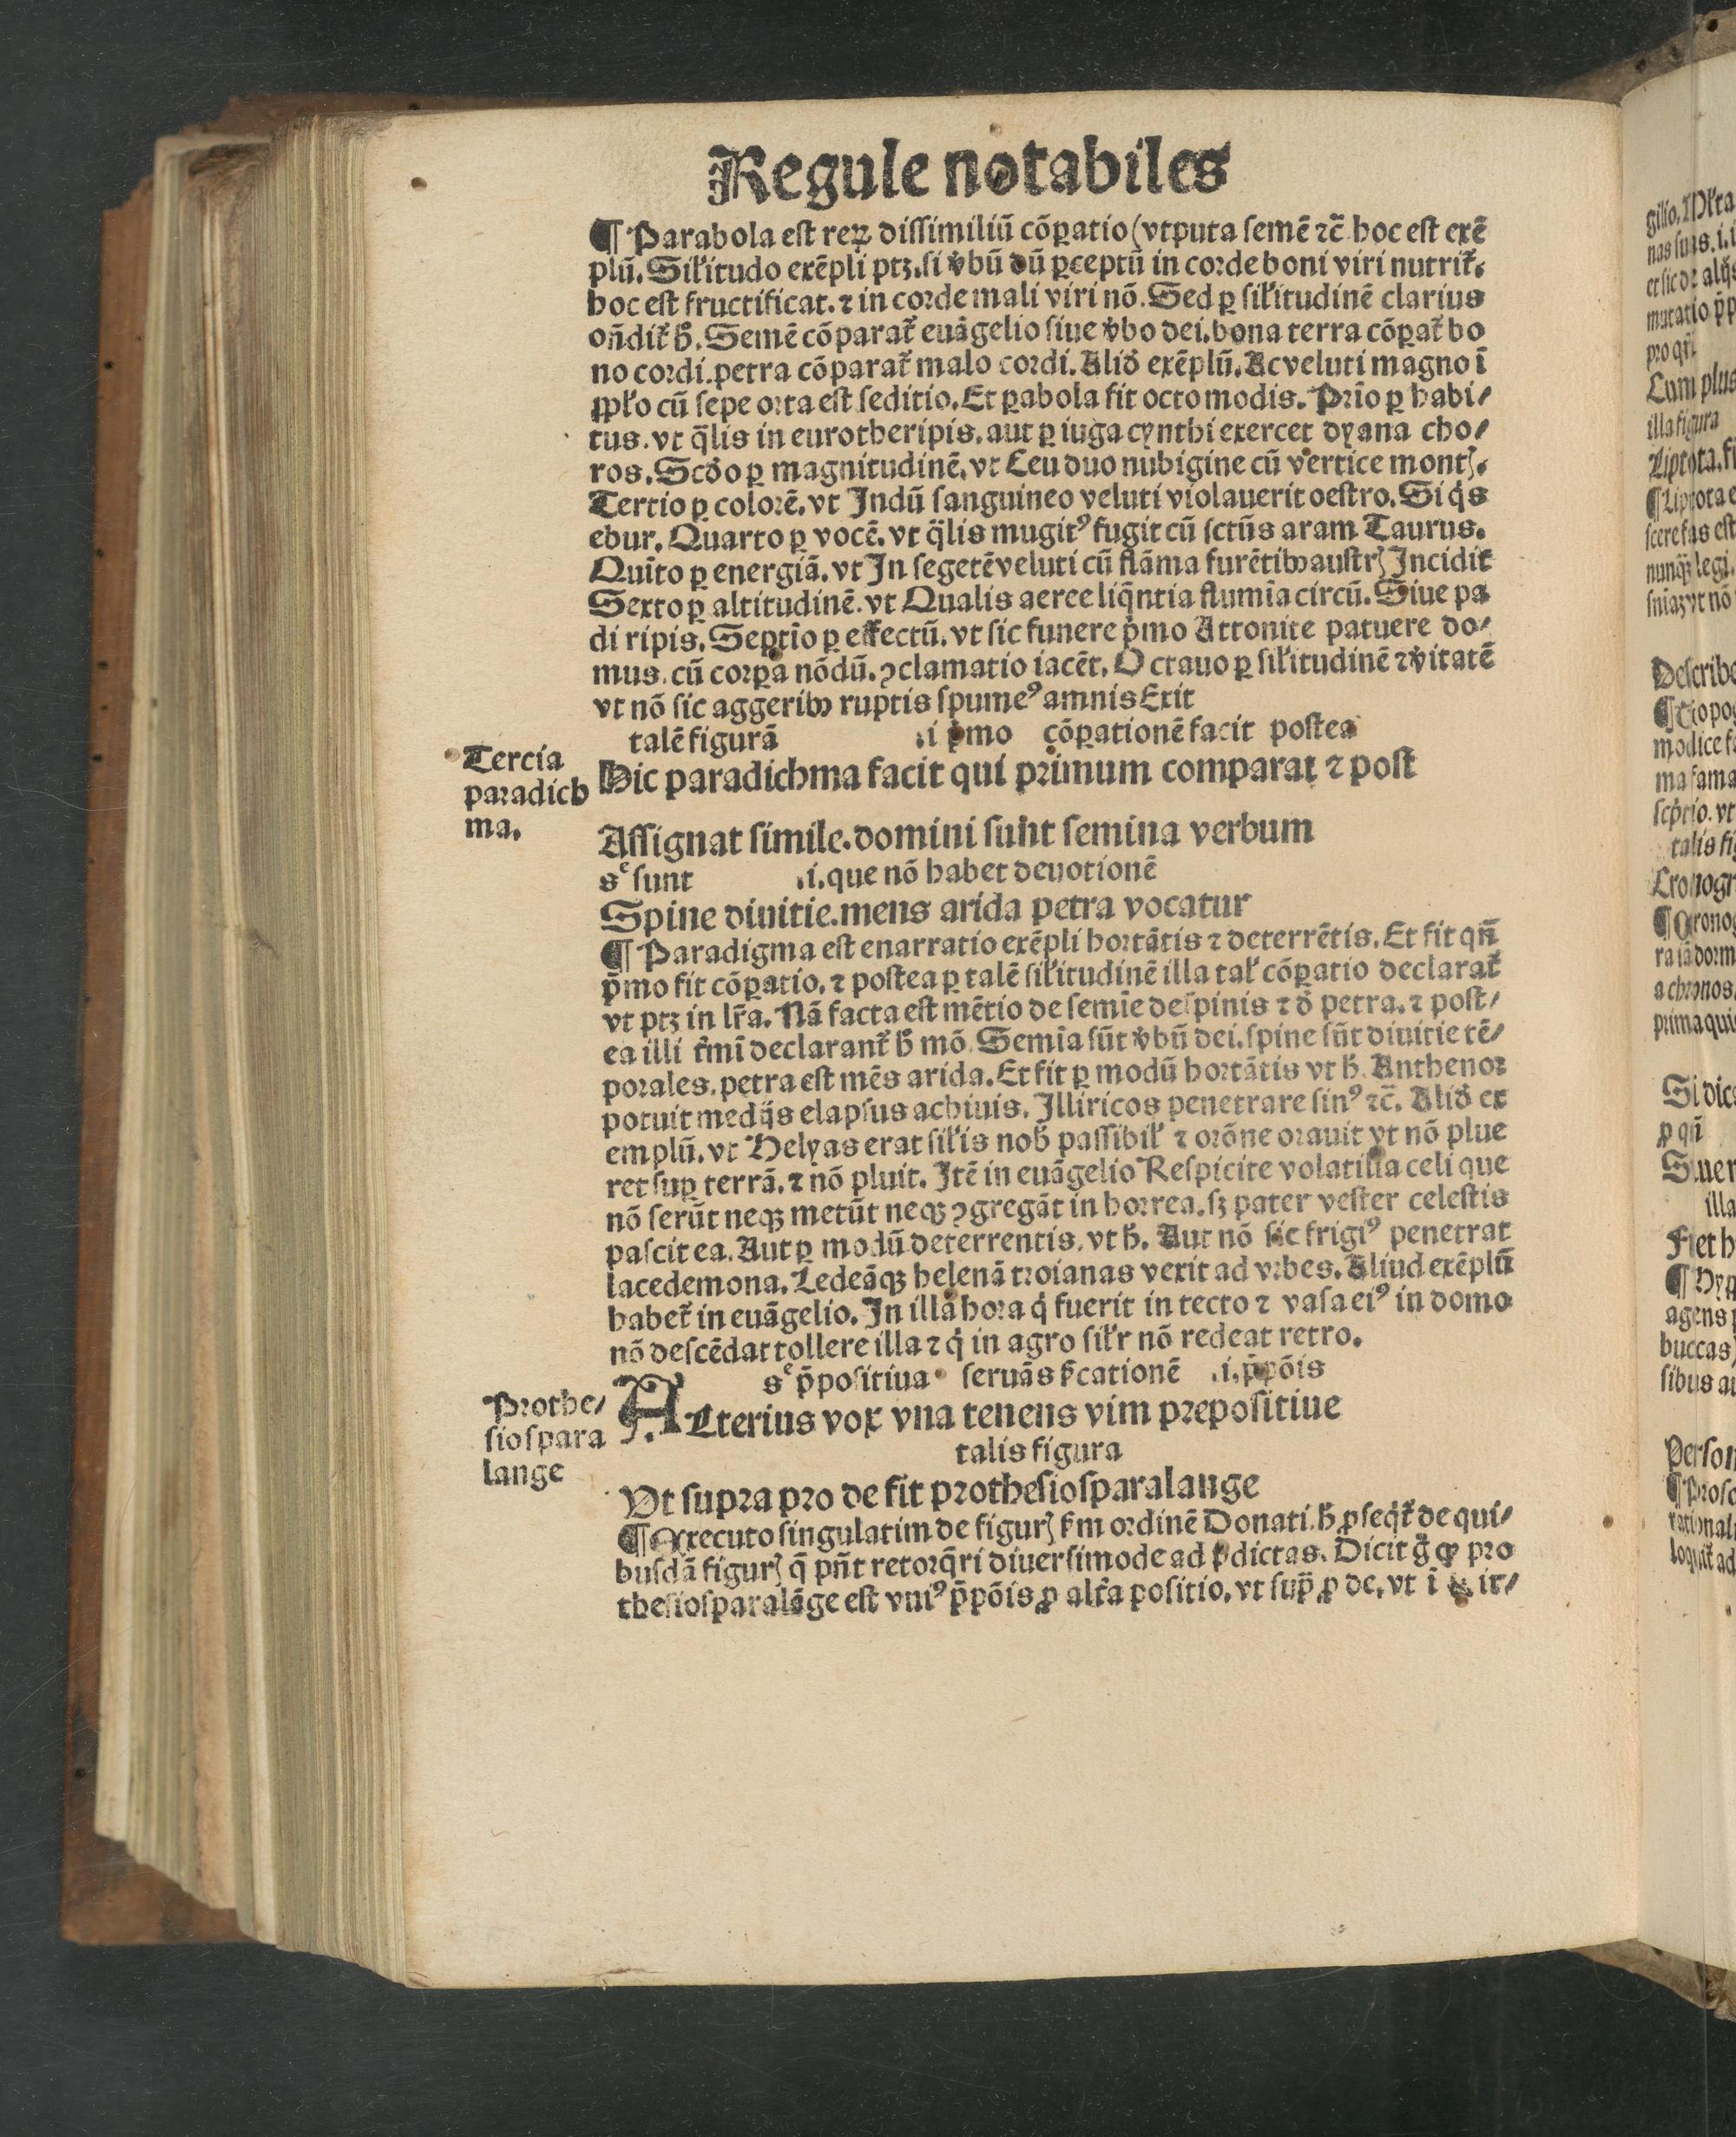 Regule notabiles
¶ Parabola est reꝝ dissimiliū cōꝑatio (vtputa semē ⁊c̄ hoc est exē
plū. Sil’itudo exēpli ptꝫ. si v̾bū dū p̱ceptū in corde boni viri nutrit᷑.
hoc est fructificat. ⁊ in corde mali viri nō. Sed ꝑ sil’itudinē clarius
on̄dit᷑ h̾. Semē cōparat᷑ euāgelio siue v̾bo dei. bona terra cōꝑat᷑ bo
no cordi. petra cōparat᷑ malo cordi. Aliđ exēplū. Ac veluti magno ī
ꝓpl’o cū sepe orta est seditio. Et ꝑabola fit octo modis. Prīo ꝑ habi⸗
tus. vt q̄lis in eurotheripis. aut ꝑ iuga cynthi exercet dyana cho⸗
ros. Scđo ꝑ magnitudinē. vt Ceu duo nubigine cū vertice montꝭ.
Tertio ꝑ colorē. vt Indū sanguineo veluti violauerit oestro. Si q̇s
ebur. Quarto ꝑ vocē. vt q̄lis mugitꝰ fugit cū sctūs aram Taurus.
Quīto ꝑ energiā. vt In segetē veluti cū flāma furētibꝫ austrꝭ Incidit
Sexto ꝑ altitudinē. vt Qualis aeree liq̄ntia flumīa circū. Siue pa
di ripis. Septīo ꝑ effectū. vt sic funere p̄mo Attonite patuere do⸗
mus. cū corꝑa nōdū. ꝯclamatio iacēt. Octauo ꝑ sil’itudinē ⁊ v̾itatē
vt nō sic aggeribꝫ ruptis spumeꝰ amnis Exit
talē figurā .i p̄mo cōꝑationē facit postea
Tercia
paradich
ma.
Hic paradichma facit qui primum comparat ⁊ post
Assignat simile. domini sunt semina verbum
sͤ sunt .i. que nō habet deuotionē
Spine diuitie. mens arida petra vocatur
¶ Paradigma est enarratio exēpli hortātis ⁊ deterrētis. Et fit qn̄
p̄mo fit cōꝑatio. ⁊ postea ꝑ talē sil’itudinē illa tal’ cōꝑatio declarat᷑
vt ptꝫ in lr̄a. Nā facta est mētio de semīe de spinis ⁊ đ petra. ⁊ post⸗
ea illi t̾mī declarant᷑ h̾ mō. Semīa sūt v̾bū dei. spine sūt diuitie tē⸗
porales. petra est mēs arida. Et fit ꝑ modū hortātis vt h̾. Anthenor
potuit medijs elapsus achiuis. Illiricos penetrare sinꝰ ⁊c̄. Aliđ ex
emplū. vt Helyas erat sil’is nob̾ passibil’ ⁊ orōne orauit vt nō plue
ret suꝑ terrā. ⁊ nō pluit. Itē in euāgelio Respicite volatilia celi que
nō serūt neqꝫ metūt neqꝫ ꝯgregāt in horrea. sꝫ pater vester celestis
pascit ea. Aut ꝑ modū deterrentis. vt h̾. Aut nō sic frigiꝰ penetrat
lacedemona. Ledeāqꝫ helenā troianas vexit ad vrbes. Aliud exēplū
habet᷑ in euāgelio. In illa hora q̇ fuerit in tecto ⁊ vasa eiꝰ in domo
nō descēdat tollere illa ⁊ q̇ in agro sil’r nō redeat retro.
sͤ p̄positiua seruās s̾cationē .i. p̄pōis
Prothe⸗
siospara
lange
ALterius vox vna tenens vim prepositiue
talis figura
Vt supra pro de fit prothesiosparalange
¶ Executo singulatim de figurꝭ s̾m ordinē Donati. h̾ ꝓseq̇t᷑ de qui⸗
busdā figurꝭ q̄ pn̄t retorq̄ri diuersimode ad p̄dictas. Dicit g̾ ꝙ pro
thesiosparalāge est vniꝰ p̄pōis ꝓ alt̾a positio. vt sup̄ ꝓ de. vt ī it⸗